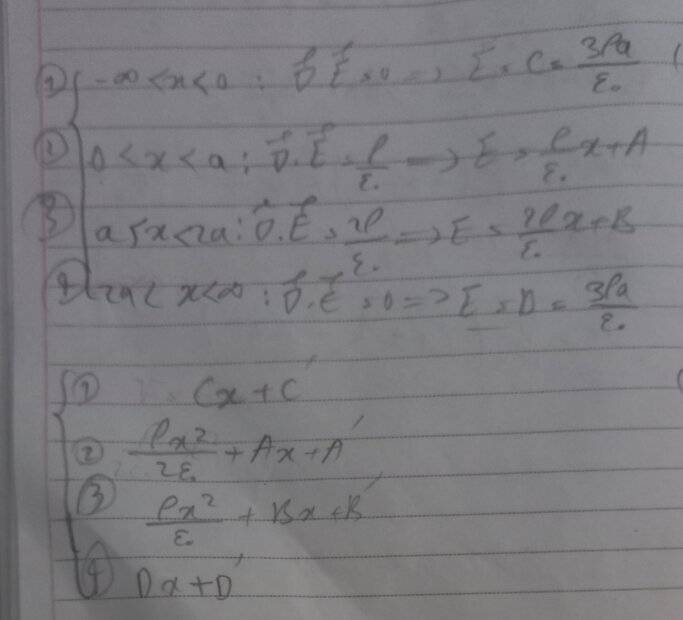 ① -∞ < x < 0 : ∇⃗.E⃗ = 0 => E = C = 3ρa/ε₀
① 0 < x < a : ∇⃗.E⃗ = ρ/ε₀ => E = ρ/ε₀ x + A
③ a < x < 2a : ∇⃗.E⃗ = 2ρ/ε₀ => E = 2ρ/ε₀ x + B
④ 2a < x < ∞ : ∇⃗.E⃗ = 0 => E = D = 3ρa/ε₀
① Cx + C'
② ρx²/2ε₀ + Ax + A'
③ ρx²/ε₀ + Bx + B'
④ Dx + D'